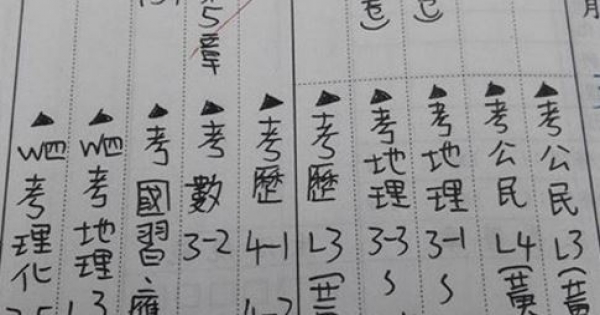 ▲考公民L3(黃
▲考公民L4(黃
▲考地理3-1~
▲考地理3-3~
▲考歷L3(黃
▲考歷4-1
5章
▲考數3-2
▲考國習、應
▲W四考地理
▲W四考理化